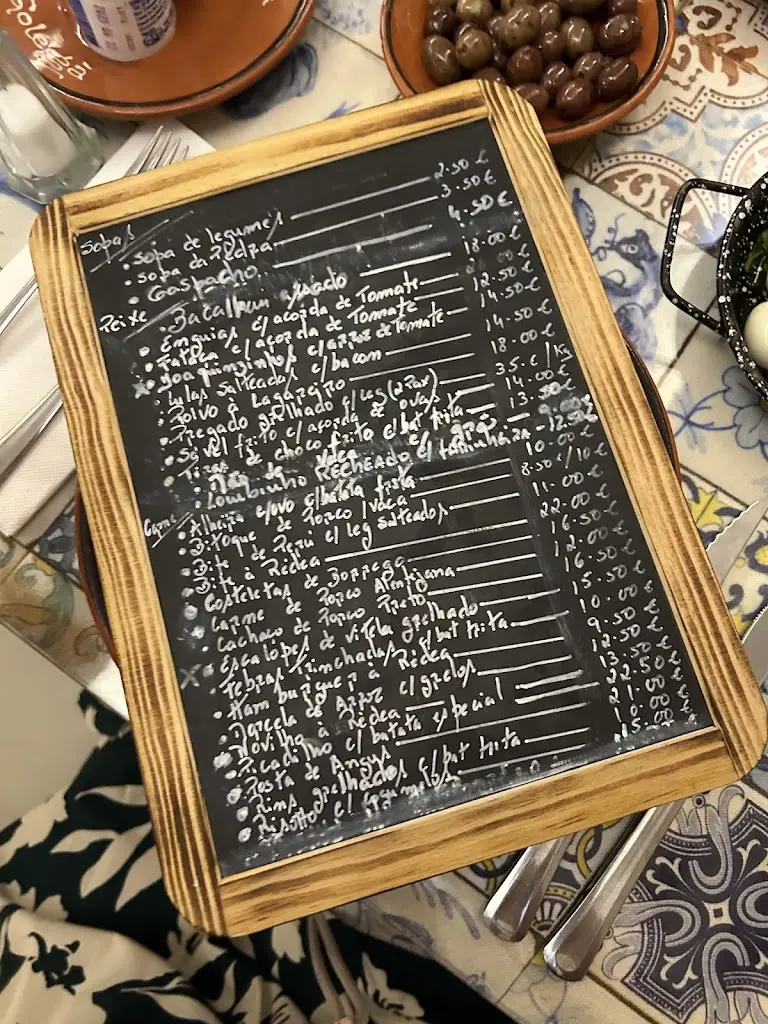 Golegã
Sopas
• Sopa de legumes 2.50 €
• Sopa da Rédea 3.50 €
• Gaspacho 4.50 €
Peixe
• Bacalhau assado 18.00 €
• Enguias c/ açorda de Tomate 12.50 €
• Fataça c/ açorda de Tomate 14.50 €
x Joaquinzinhos c/ arroz de Tomate
• Lulas salteadas c/ bacon 14.50 €
• Polvo à Lagareiro 18.00 €
• Pregado grelhado c/ leg (2 Pax) 35.€ / Kg
• Sável frito c/ açorda de ovas 14.00 €
• Tiras de choco frito c/ bat frita 13.50
de vaca c/ grão
• Lombinho RECHEADO c/ farinheira 12.50 €
Carne
• Alheira c/ ovo c/ batata frita 10.00 €
• Bitoque de Porco / Vaca 8.50 / 10 €
• Bife de Peru c/ leg salteados 11.00 €
• Bife à Rédea 22.00 €
• Costeletas de Borrego 16.50 €
• Carne de Porco Alentejana 12.00 €
• Cachaço de Porco Preto 16.50 €
x Escalopes de vitela grelhado 15.50 €
• Febras Trinchadas c/ bat frita 10.00 €
• Hamburguer à Rédea 9.50 €
• Morcela de Arroz c/ grelos 12.50 €
• Novilho à Rédea 13.50 €
• Picadilho c/ batata especial 22.50 €
• Posta de Angus 21.00 €
• Rins grelhados c/ bat frita 10.00 €
• Risotto c/ cogumelos 15.00 €